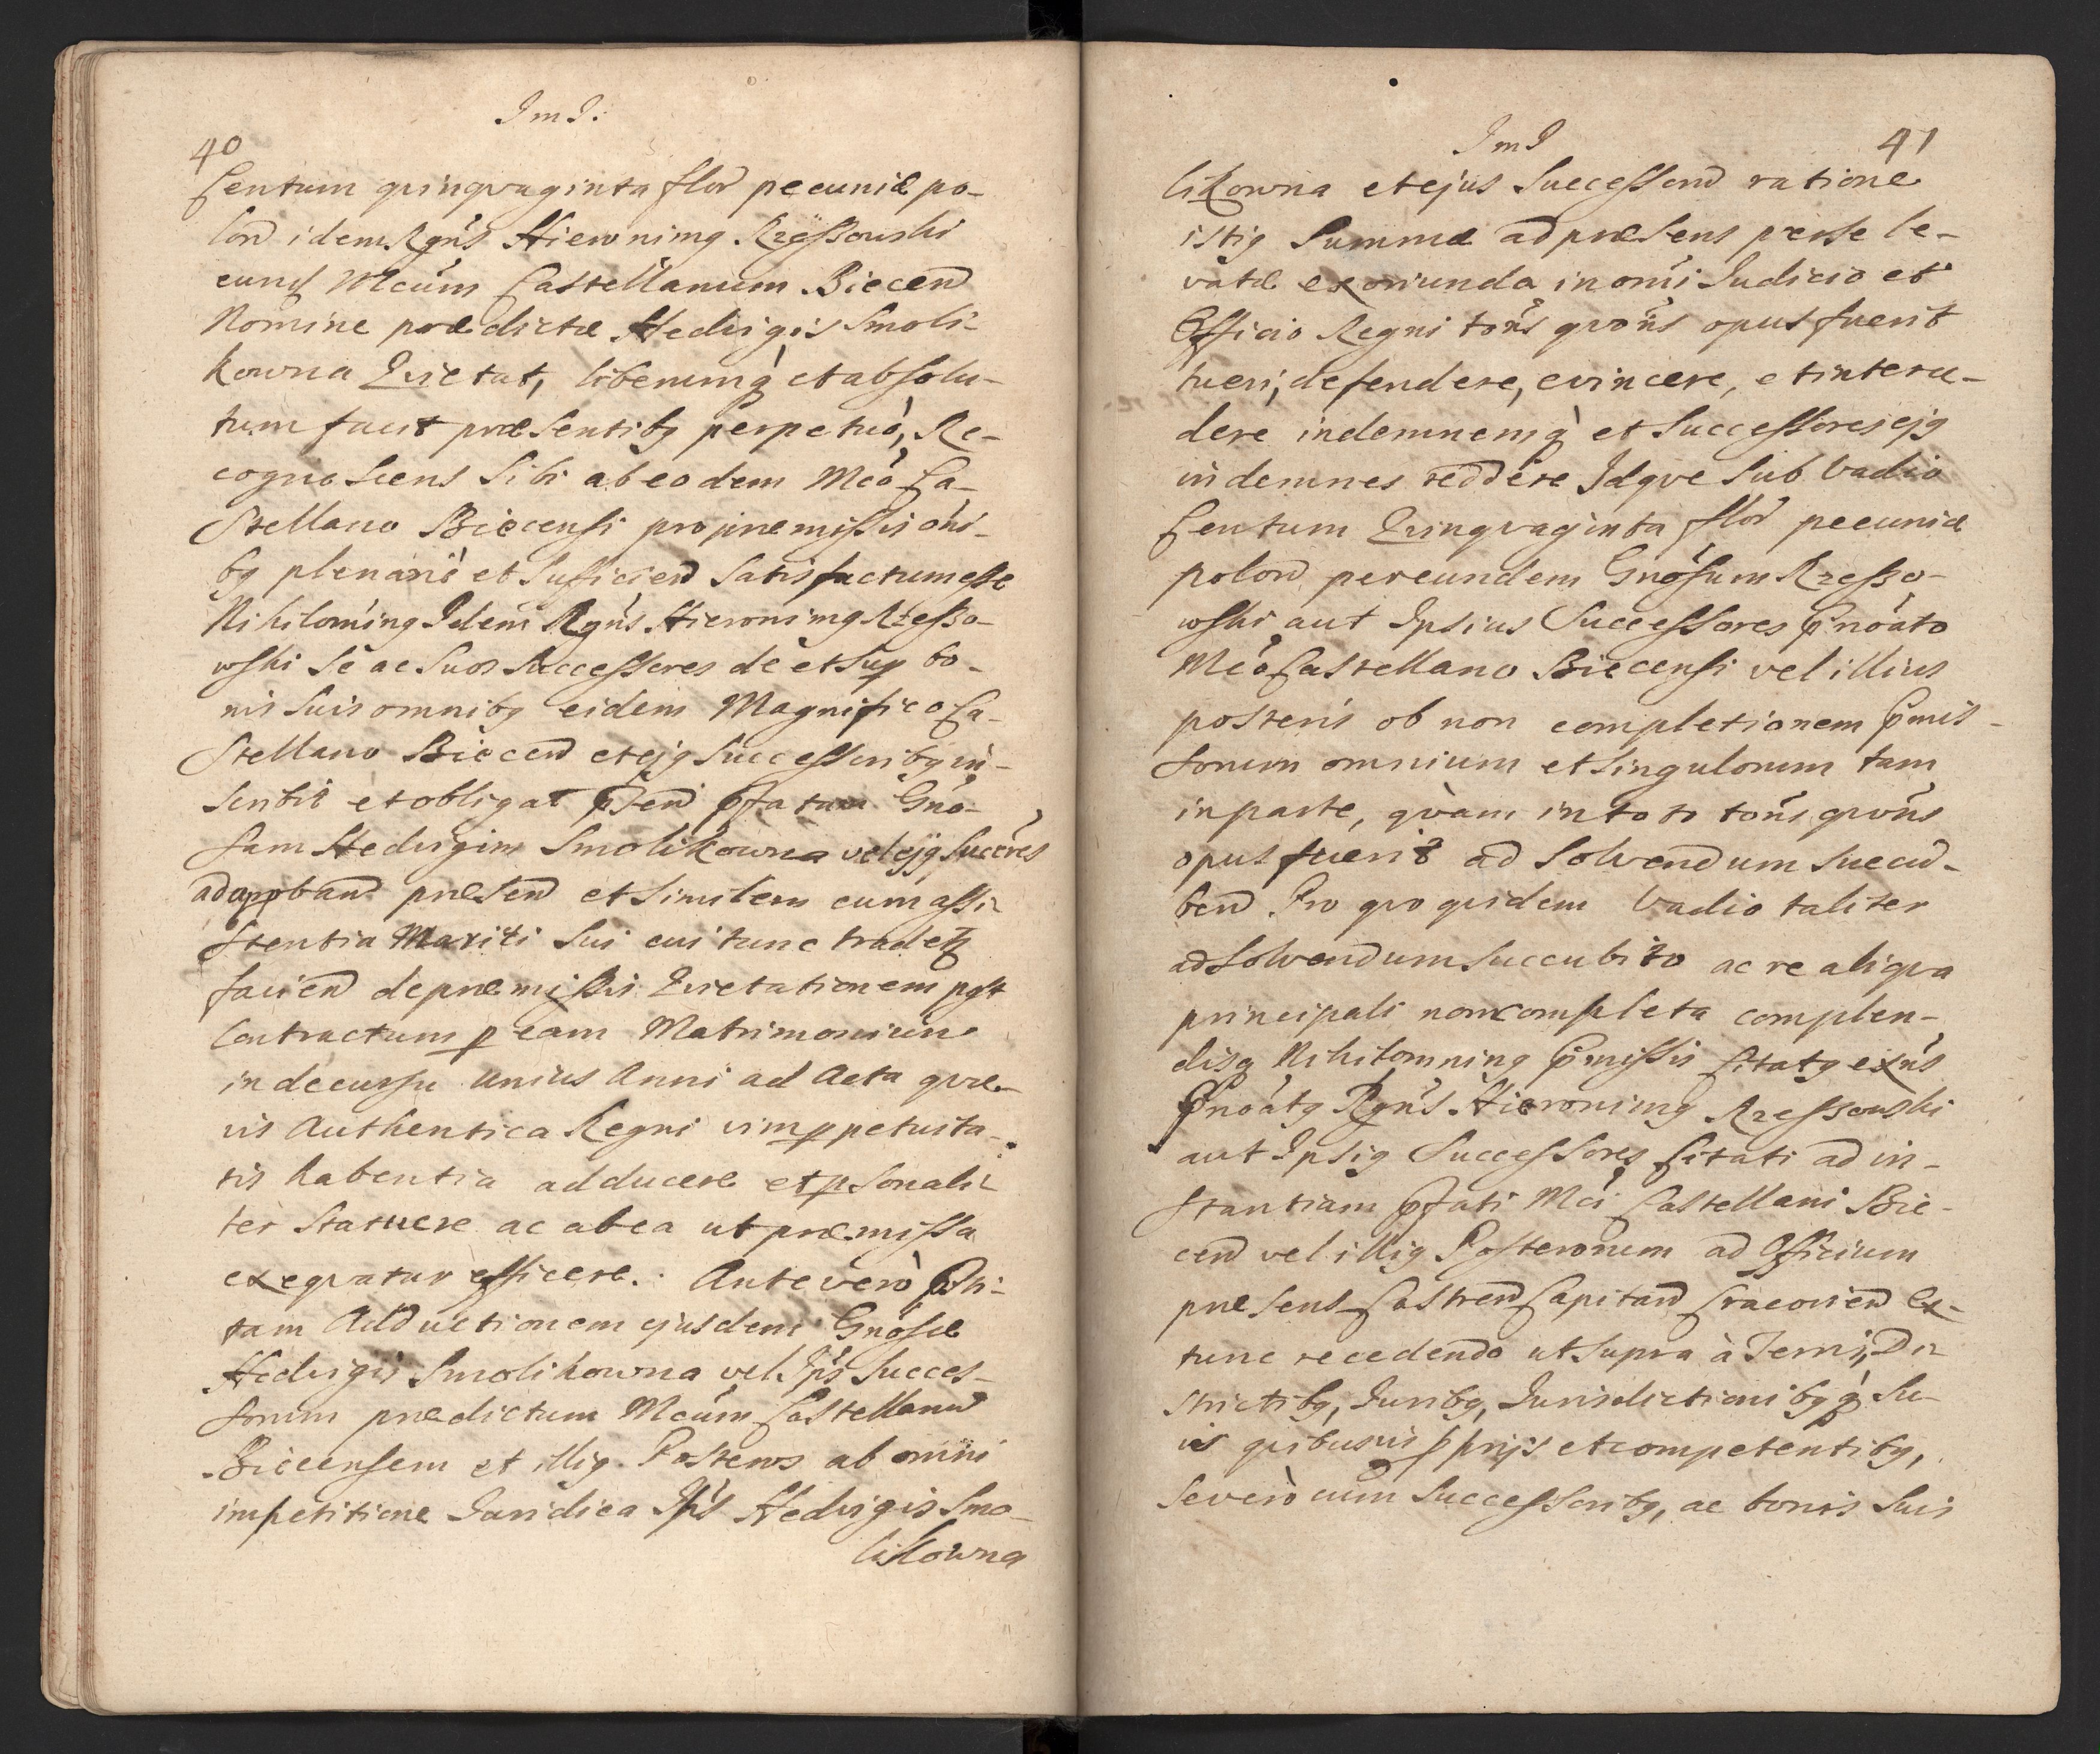 JmJ.
40
Centum qvinqvaginta flor pecuniæ po-
lon idem Rgn̄s Hieronimꝰ Rzessowski
eund Mcūm Castellanum Biecen
Nomine prædictæ Hedvigis Smoli-
kowna Qvietat, liberumq̀ et absolu-
tum facit præsentibꝰ perpetuò, Re-
cognoscens sibi ab eodem Mcō Ca-
stellano Biecensi pro præmissis oni-
bꝰ plenariè et sufficien satisfactum esse
Nihilominꝰ Idem Rgn̄s Hieronimꝰ Rzesso-
wski se ac suos successores de et sup bo-
nis suis omnibꝰ eidem Magnifico Ca-
stellano Biecen et ejꝰ successoribꝰ in-
scribit et obligat pͬsen pfatam Gnō-
sam Hedvigim Smolikowna vel ejꝰ succr̄es
ad approband præsen et similem cum assi-
stentia Mariti sui cui tunc tradetꝭ
facien de præmissis Qvietationem post
Contractum p eam Matrimonium
in decursu unius Anni ad Acta qvæ-
vis Authentica Regni vim ppetuita-
tis habentia adducere et psonali-
ter statuere ac ab ea ut præmissa
exeqvatur efficere. Ante verò psti-
tam Adductionem ejusdem Gnōsæ
Hedvigis Smolikowna vel Ips̄ Succes-
sorum prædictum Mcūm Castellanu
Biecensem et illiꝰ Posteros ab omni
impetitione Juridica Ips̄ Hedvigis Smo-
likowna
JmJ
41
likowna et ejus Successorū ratione
istiꝰ Summæ ad præsens per se le-
vatæ exoriunda in omī Judicio et
Officio Regni toīs qvoīs opus fuerit
tueri, defendere, evincere, et interce-
dere indemnemq̀ et Successores ejꝰ
indemnes reddere Idqve sub Vadio
Centum Qvinqvaginta flor pecuniæ
polon per eundem Gnōsum Rzesso-
wski aut Ipsius Successores pnōato
Mcō Castellano Biecensi vel illius
posteris ob non completionem pmis-
sorum omnium et singulorum tam
in parte, qvàm in toto toīs qvoīs
opus fuerit ad solvendum succu-
ben Pro qvo qvidem Vadio taliter
ad solvendum succubito ac re aliqva
principali non completa complen-
disq̀ Nihilominꝰ pmissis Citatꝰ exn̄s
Pnōatꝰ Rgn̄s Hieronimꝰ Rzessowski
aut Ipsiꝰ Successores Citati ad in-
stantiam pfati Mcī Castellani Bie-
cen vel illiꝰ Posterorum ad Officium
præsens Castren Capitan Cracovien Ex-
tunc recedendo ut supra à Terris, Di-
strictibꝰ, Juribꝰ, Jurisdictionibꝰq̀ su-
is qvibusvis pprijs et competentibꝰ,
se verò cum Successoribꝰ, ac bonis suis